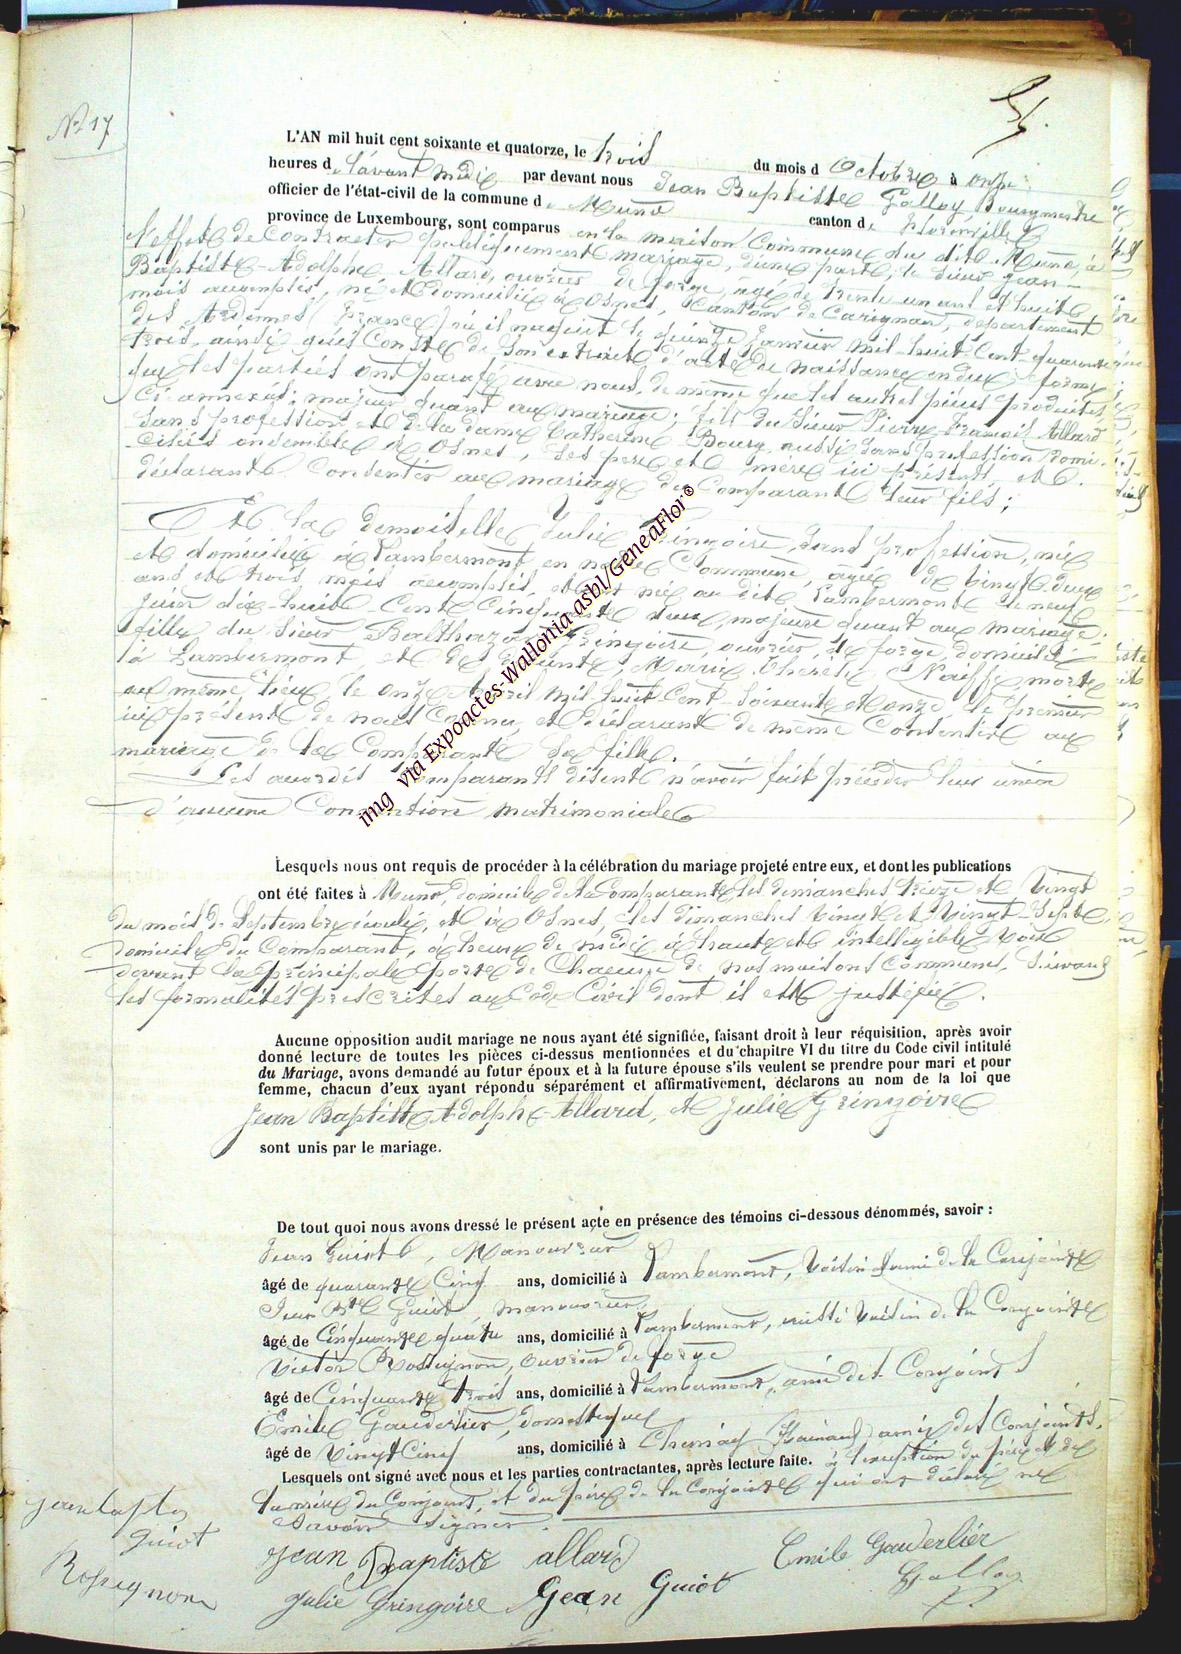 N° 17
L'AN mil huit cent soixante et quatorze, le trois du mois d Octobre à onze
heures d l'avant midi par devant nous Jean Baptiste Galloy Bourgmestre
officier de l'état-civil de la commune d e Muno canton d e Florenville
province de Luxembourg, sont comparus en la maison Commune du dit Muno, à
l'effet de contracter publiquement mariage, d'une part, le sieur Jean-
Baptiste-Adolphe Allard, ouvrier de forge, agé de trente un ans et huit
mois accomplis, né et domicilié à Osnes, Canton de Carignan, département
des Ardennes (France) où il naquit le quinze Janvier mil-huit-cent-quarante
trois, ainsi qu'il Conste de son extrait d'acte de naissance en due forme
que les parties ont parafé avec nous, de même que les autres pièces produites
ci-annexés; majeur quant au mariage; fils du Sieur Pierre François Allard
sans profession et de la dame Catherine Bourg aussi sans profession domi-
ciliés ensemble à Osnes, ses père et mère ici présents, et
déclarant Consentir au mariage du Comparant leur fils;
Et la demoiselle Julie Gringoire, sans profession, née
et domiciliée à Lambermont en notre Commune, âgée de vingt-deux
ans et trois mois accomplis, étant née au dit Lambermont le neuf
Juin dix-huit-Cent Cinquante deux, majeure quant au mariage.
fille du sieur Balthazar Gringoire, ouvrier de forge, domicilié
à Lambermont et de défunte Marie Thérèse Naiffe morte
au même lieu le onze Avril mil huit-Cent-Soixante et onze, le premier
ici présent de nous Connu, et déclarant de même Consentir au
mariage de la Comparante sa fille.
Les susdits Comparants disent n'avoir fait précéder leur union
d'aucune Convention matrimoniale
img via Expoactes-Wallonia asbl/GeneaFlor©
Lesquels nous ont requis de procéder à la célébration du mariage projeté entre eux, et dont les publications
ont été faites à Muno, domicile de la Comparante les dimanches treize et Vingt
du mois de Septembre écoulé, et à Osnes, les dimanches vingt et Vingt-Sept
domicile du Comparant, à heure de midi à haute et intelligible voix
devant la principale porte de Chacune de nos maisons communes, suivant
les formalités prescrites au Code Civil dont il est justifié.
Aucune opposition audit mariage ne nous ayant été signifiée, faisant droit à leur réquisition, après avoir
donné lecture de toutes les pièces ci-dessus mentionnées et du chapitre VI du titre du Code civil intitulé
du Mariage, avons demandé au futur époux et à la future épouse s'ils veulent se prendre pour mari et pour
femme, chacun d'eux ayant répondu séparément et affirmativement, déclarons au nom de la loi que
Jean Baptiste Adolphe Allard, et Julie Gringoire
sont unis par le mariage.
De tout quoi nous avons dressé le présent acte en présence des témoins ci-dessous dénommés, savoir :
Jean Guiot, Manouvrier
âgé de quarante Cinq ans, domicilié à Lambermont, Voisin et ami de la Conjointe
Jean Bte Guiot, manouvrier,
âgé de Cinquante quatre ans, domicilié à Lambermont, aussi Voisin de la Conjointe
Victor Rossignon, Ouvrier de forge
âgé de Cinquante trois ans, domicilié à Lambermont, ami des Conjoints
Emile Gauderlier, domestique
âgé de Vingt Cinq ans, domicilié à Chimay (Hainaut) ami des Conjoints.
Lesquels ont signé avec nous et les parties contractantes, après lecture faite. à l'exception du père et de
la mère du Conjoint, et du père de la Conjointe qui ont déclaré ne
Savoir signer.
jean baptis
guiot
Rossignon
Jean Baptiste allard
Emile Gauderlier
Julie Gringoire
Jean Guiot
Galloy